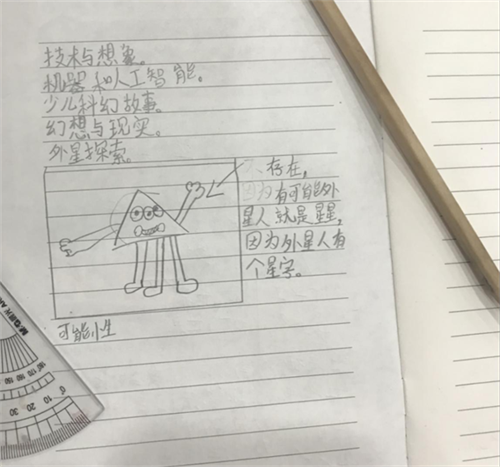 技术与想象。
机器和人工智能。
少儿科幻故事。
幻想与现实。
外星探索。
存在,
因为有可能外
星人就是星星,
因为外星人有
个星字。
可能小生
0
10
20
30